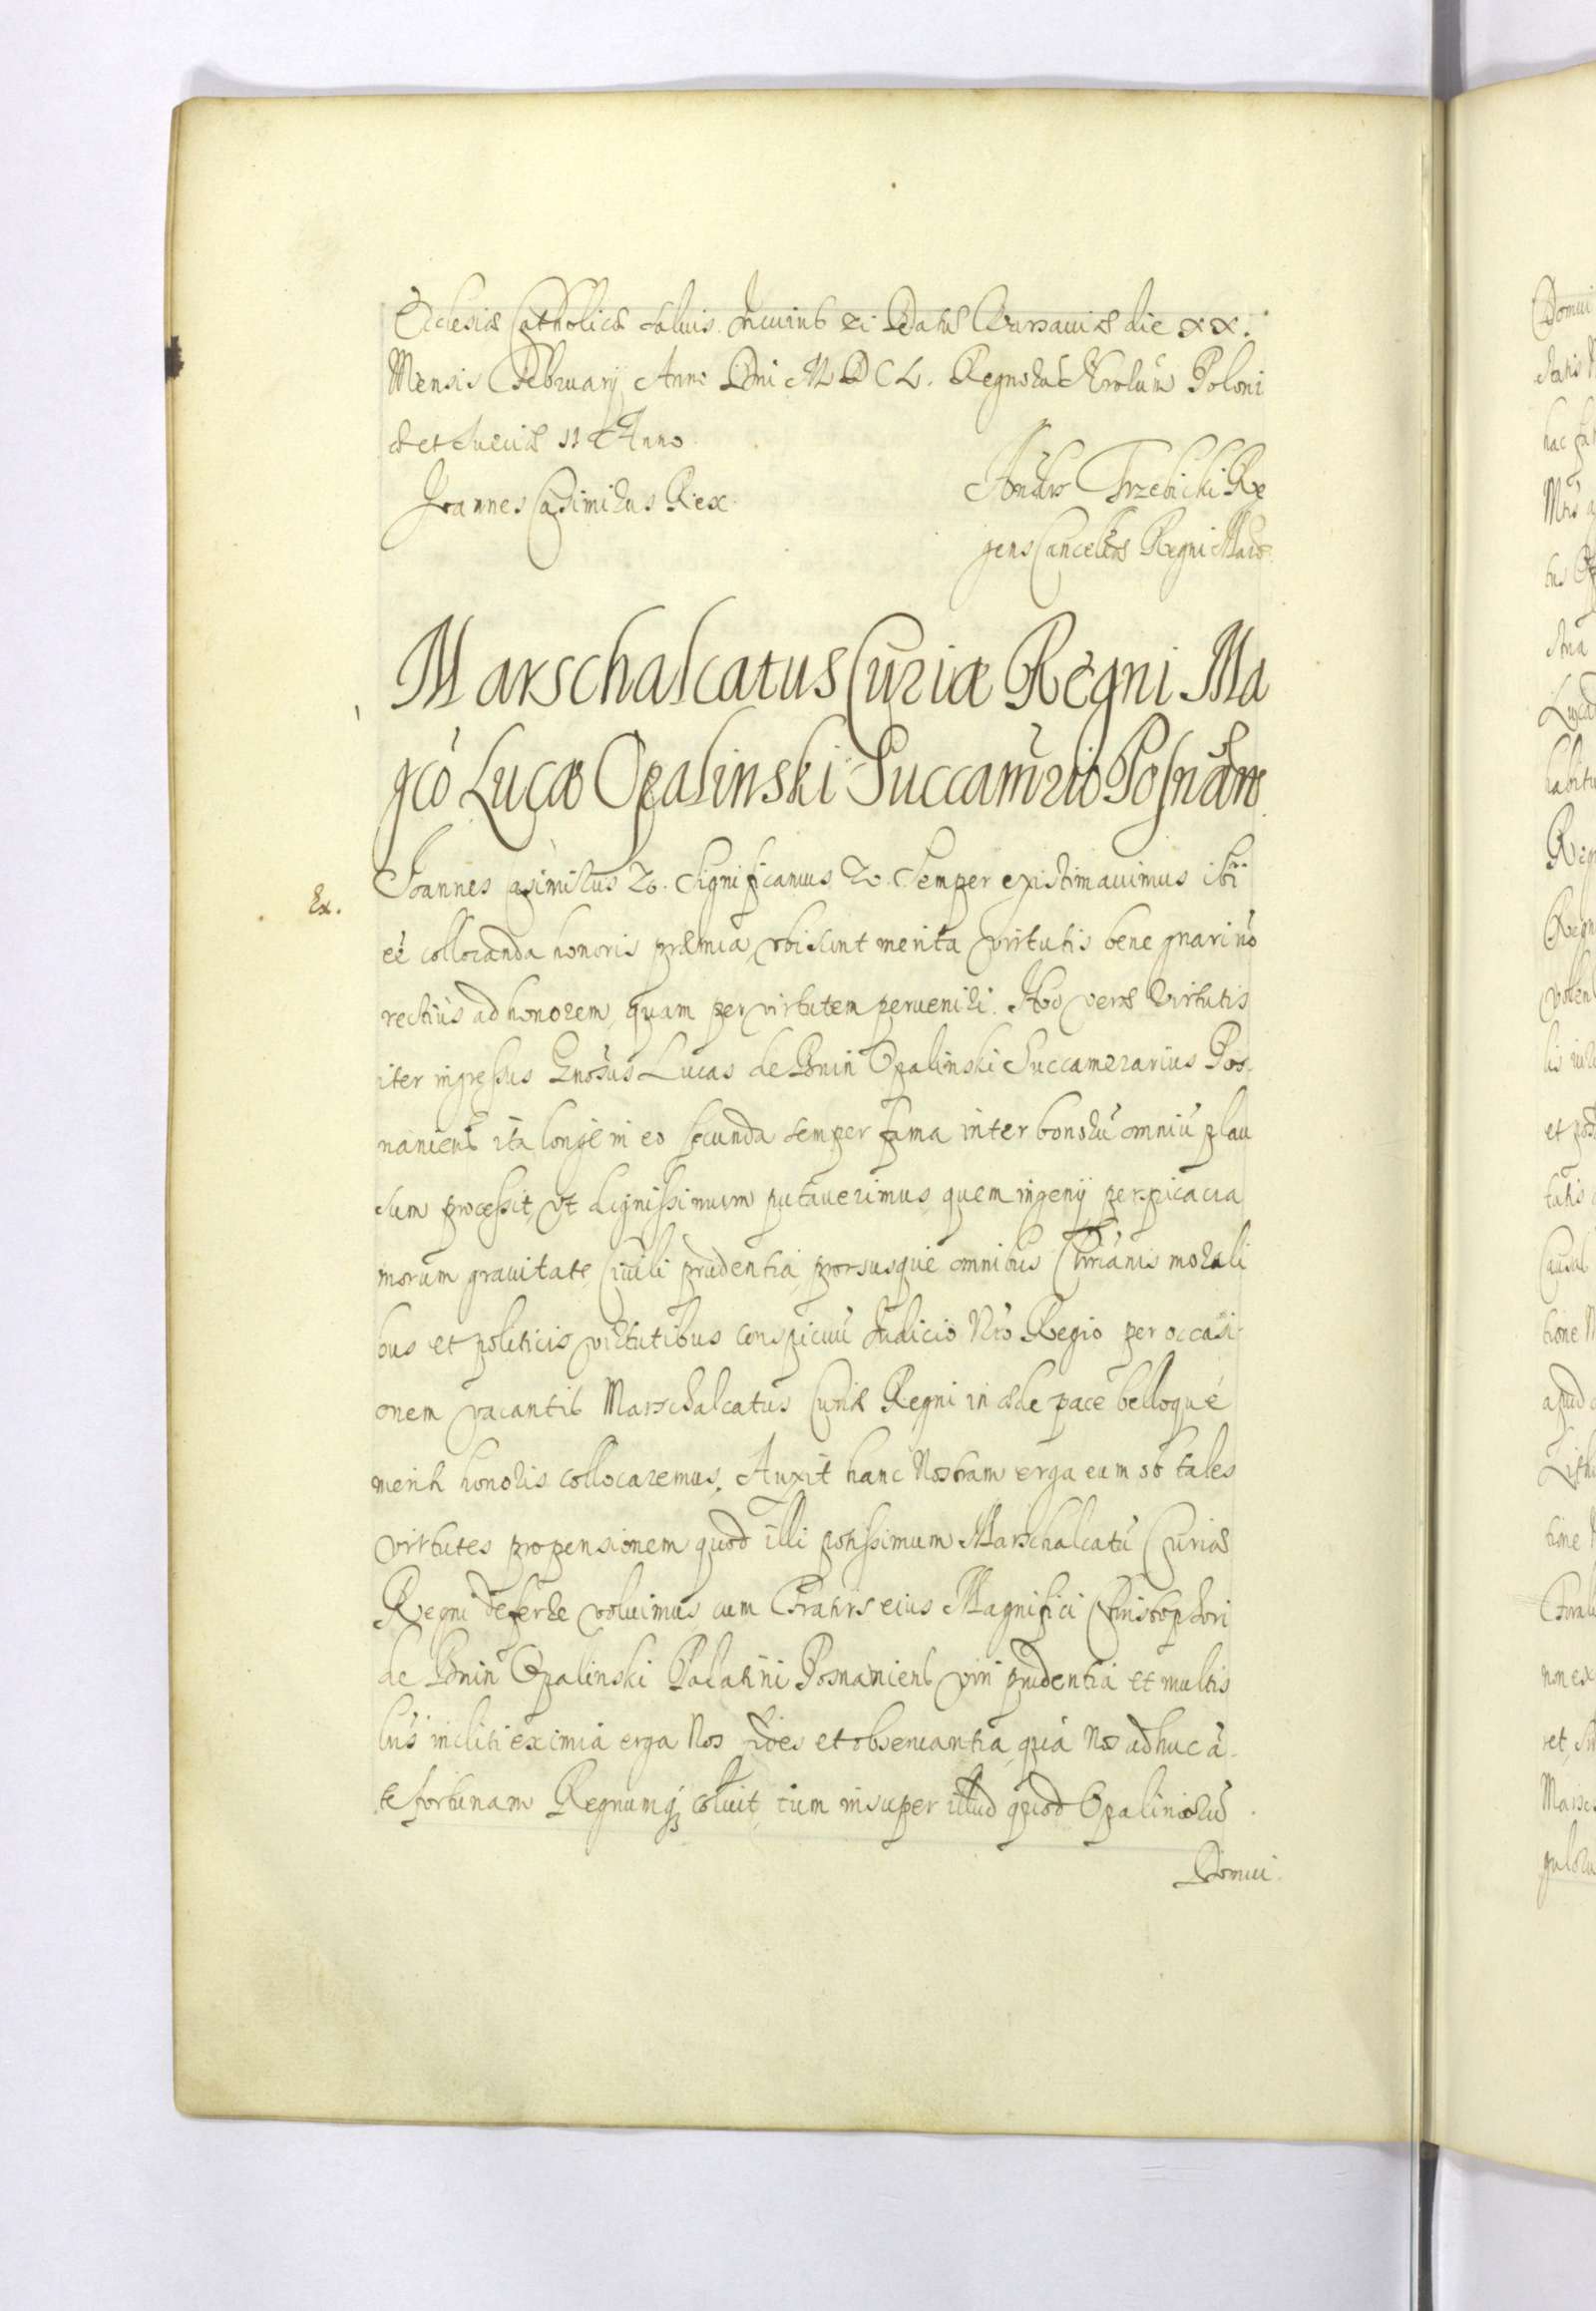 Ecclesiæ Catholicæ salvis. In cuius rei Datæ Varsaviæ die XX.
Mensis February Anno Dni MDCL. Regnorũ Nrorum Poloni
æ et Sueciæ II Anno
Joannes Casimirus Rex.
Andrs Trzebicki Re
gens Cancellas Regni Mãw
Marschalcatus Curiæ Regni Ma
gco Lucæ Opalinski Succamrio Posnãn.
Ex.
Joannes Casimirus &. Significamus &. Semper existimavimus ibi
eẽ collocanda honoris præmia, ubi sunt merita virtutis bene gnari nõ
rectius ad honorem, quam per virtutem perveniri. Hoc veræ virtutis
iter ingressus Gnosus Lucas de Bnin Opalinski Succamerarius Pos-
naniens ita longe in eo secunda semper fama inter bonorũ omniũ plau
sum processit, ut dignissimum putaverimus, quem ingenij perspicacia
morum gravitate, Civili prudentia, prorsusque omnibus Chrianis morali
bus et politicis virtutibus conspicuũ Judicio Nro Regio per occasi-
onem vacantis Marschalcatus Curiæ Regni in æde pace belloque
meriti honoris collocaremus. Auxit hanc Nostram erga eum ob tales
virtutes propensionem quod illi potissimum Marschalcatũ Curiæ
Regni deferre voluimus, cum Fratris eius Magnifici Christophori
de Bnin Opalinski Palatini Posnaniens viri prudentia et multis
bus incliti eximia erga Nos fides et observantia, qua Nos adhuc ã-
te fortunam Regnumq coluit, tum insuper illud quod Opaliniorũ
Domui